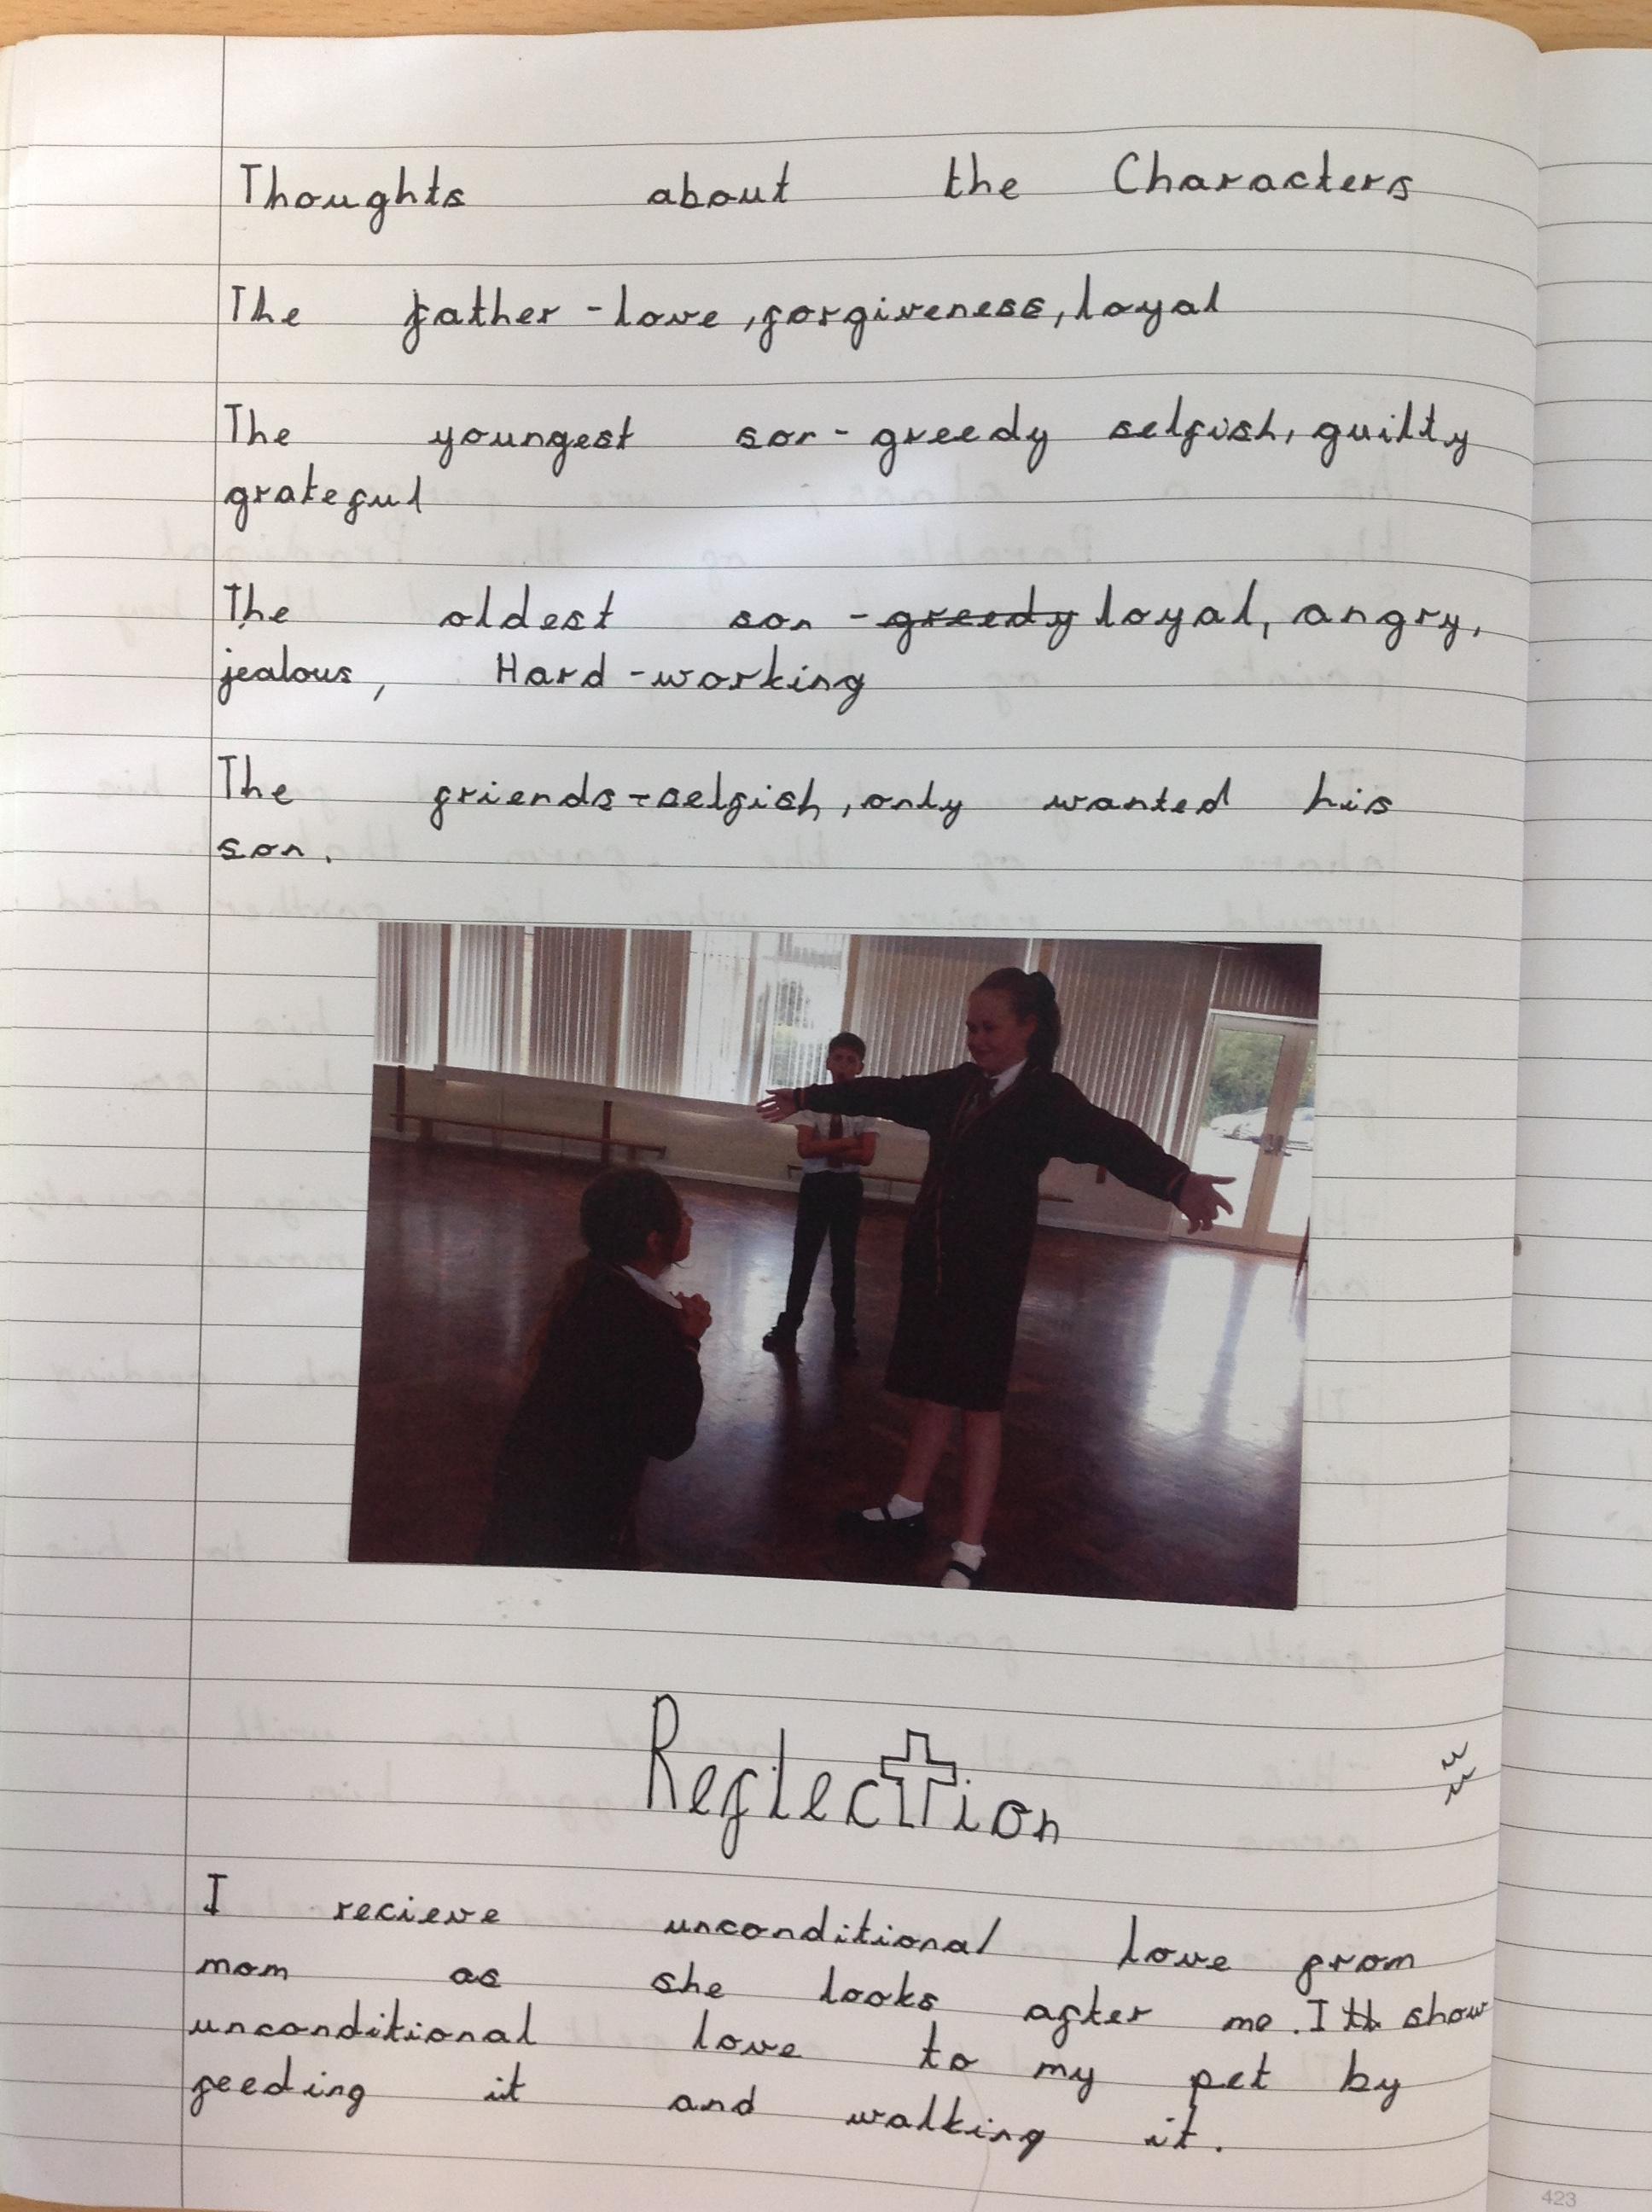 Thoughts about the Characters
The father - love, forgiveness, loyal
The youngest son - greedy selfish, guilty
grateful
The oldest son - greedy loyal, angry,
jealous, Hard-working
The friends - selfish, only wanted his
son.
Reflection
I recieve unconditional love from
mom as she looks after me. I show
unconditional love to my pet by
feeding it and walking it.
423